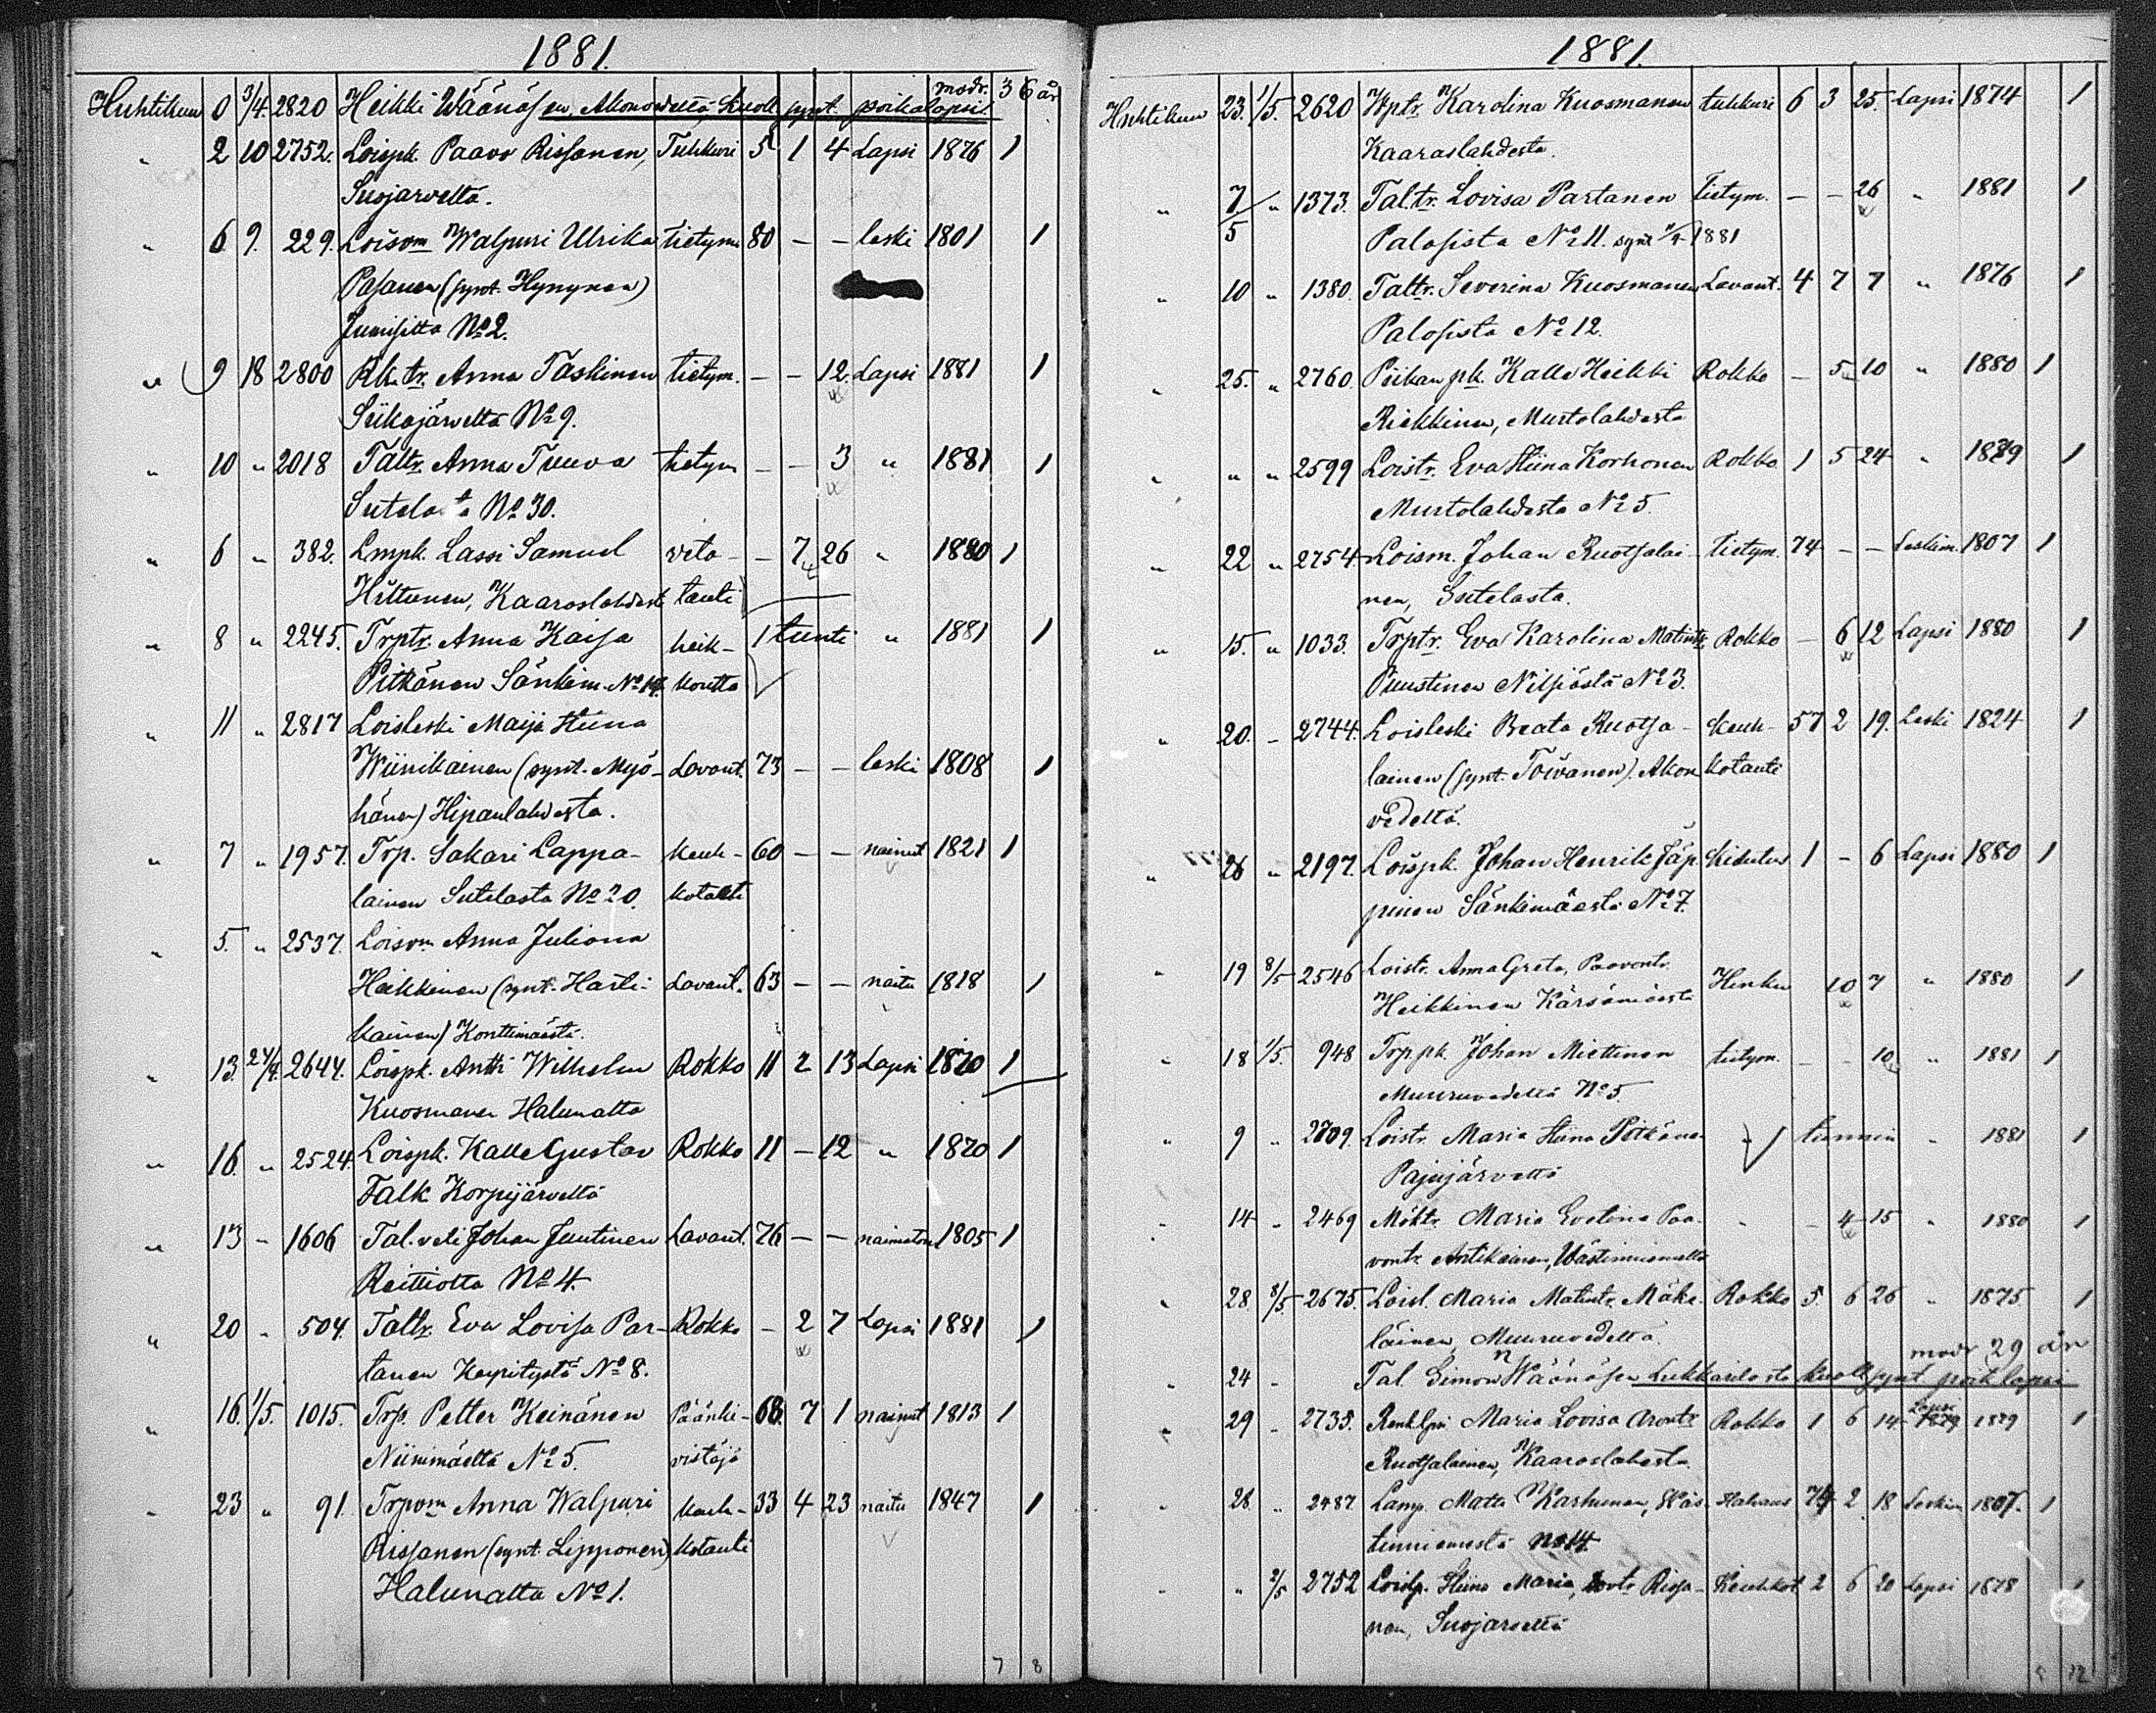 1881.
Huhtikuu 0 3/4. 2820 Heikki Wäänäsen, Akonvedeltä, kuoll. synt. poikalapsi. modr. 36 år
" 2 10 2752. Loispk. Paavo Rissanen, Tuhkuri 5 1 4 Lapsi 1876 1
Suojarveltä.
" 6 9. 229. Loisvm Walpuri Ulrika tietym 80 — — leski 1801 1
Pasanen (synt. Hynynen)
No 2.
" 9 18 2800 Rk. tr. Anna Taskinen tietym. — — 12. Lapsi 1881 1
Siikajärveltä No 9.
" 10 " 2018 Taltr. Anna Tuuva tietym — — 3 " 1881 1
Sutelasta No 30.
" 6 " 382. Lmpk. Lassi Samuel veta- — 7 26 " 1880 1
Hiltunen, Kaaroslahdesta tauti
" 8 " 2245. Trptr. Anna Kaisa heik- 1 tunti " 1881 1
Pitkänen Sänkim. No 14. koutta
" 11 " 2817 Loisleski Maija Stiina
Wiinikainen (synt. Myö- Lavant. 73 — — leski 1808 1
hänen) Hipanlahdesta.
" 7 " 1957. Trp. Sakari Lappa- keuh- 60 — — nainut 1821 1
lainen Sutelasta No 20. kotauti
" 5. " 2537. Loisvm Anna Juliana
Heikkinen (synt. Harti- Lavant. 63 — — naitu 1818 1
kainen) Konttimäestä.
" 13. 24/4. 2644. Loispk. Antti Wilhelm Rokko 11 2 13 Lapsi 1870 1
Kuosmanen Halunalta
" 16. " 2524. Loispk. Kalle Gustav Rokko 11 — 12 " 1870 1
Falk Korpijärveltä
" 13 - 1606 Tal. veli Johan Juutinen Lavant. 76 — — naimaton 1805 1
Keittiöltä No 4.
" 20 - 504. Taltr. Eva Lovisa Par- Rokko — 2 7 Lapsi 1881 1
tanen No 8.
" 16. 1/5. 1015. Trp. Petter Keinänen Päänki- 68. 7 1 nainut 1813 1
Niinimäeltä No 5. vistäjä
" 23 " 91. Trpvm Anna Walpuri keuh- 33 4 23 naitu 1847 1
Rissanen (synt. Lipponen) kotauti
Halunalta No 1.
7 8
1881.
Huhtikuu 23. 1/5. 2620 Karolina Kuosmanen tuhkuri 6 3 25. Lapsi 1874 1
Kaaraslahdesta.
" 7/5 " 1373. Tal.tr. Lovisa Partanen Tietym. — — 26 " 1881 1
Palosista No 11. synt 1/4 1881
" 10 " 1380. Taltr. Severina Kuosmanen Lavant. 4 7 7 " 1876 1
Palosista No 12.
" 25. " 2760. Piikan pk. Kalle Heikki Rokko — 5 10 " 1880 1
Riekkinen, Murtolahdesta
" " " 2599 Loistr. Eva Stiina Korhonen Rokko 1 5 24 " 1879 1
Murtolahdesta No 5.
" 22 " 2754. Loism. Johan Ruotsalai- Tietym. 74 — — Leskim. 1807 1
nen, Sutelasta.
" 15. " 1033. Trptr. Eva Karolina Matintr. Rokko — 6 12 Lapsi 1880 1
Puustinen Nilsiästä No 3.
" 20. - 2744. Loisleski Beata Ruotsa- Keuh- 57 2 19. Leski 1824 1
lainen (synt. Toivanen). Akon kotauti
vedeltä.
" 26 " 2197. Loispk. Johan Henrik Jäp- Kidutus 1 — 6 Lapsi 1880 1
pinen Sänkimäestä No 7.
" 19 8/5 2546 Loistr. Anna Greta, Paavontr. Hinku 10 7 " 1880 1
Heikkinen Kärsämäestä
" 18 1/5. 948 Trp.pk. Johan Miettinen tietym. — — 10 " 1881 1
Muuruvedeltä No 5.
" 9 " 2709. Loistr. Maria Stiina Pitkänen " 1 tunnin " 1881 1
Pajujärveltä
" 14 " 2469 Möktr. Maria Evelina Paa- " — 4 15 " 1880 1
vontr. Antikainen, Wästinniemeltä
" 28 8/5 2675. Loisl. Maria Matintr. Mäke- Rokko 5. 6 26 " 1875 1
läinen, Muuruvedeltä.
24 - Tal. Simon Wäänäsen Lukkarilasta kuoll. synt. poik. lapsi modr 29 år
" 29 - 2735. Maria Lovisa Arontr. Rokko 1 6 14. Lapsi 1879 1879 1
Ruotsalainen, Kaaroslahesta.
" 28. " 2487. Lamp. Matti Karhunen, Wäs- Halvaus 74 2 18 Leskim 1807. 1
tinniemestä No 14.
" " 2/5 2752 Loislp. Stiina Maria, Rissa- Keuhkot. 2 6 20 Lapsi 1878 1
nen, Suojarveltä
5 12